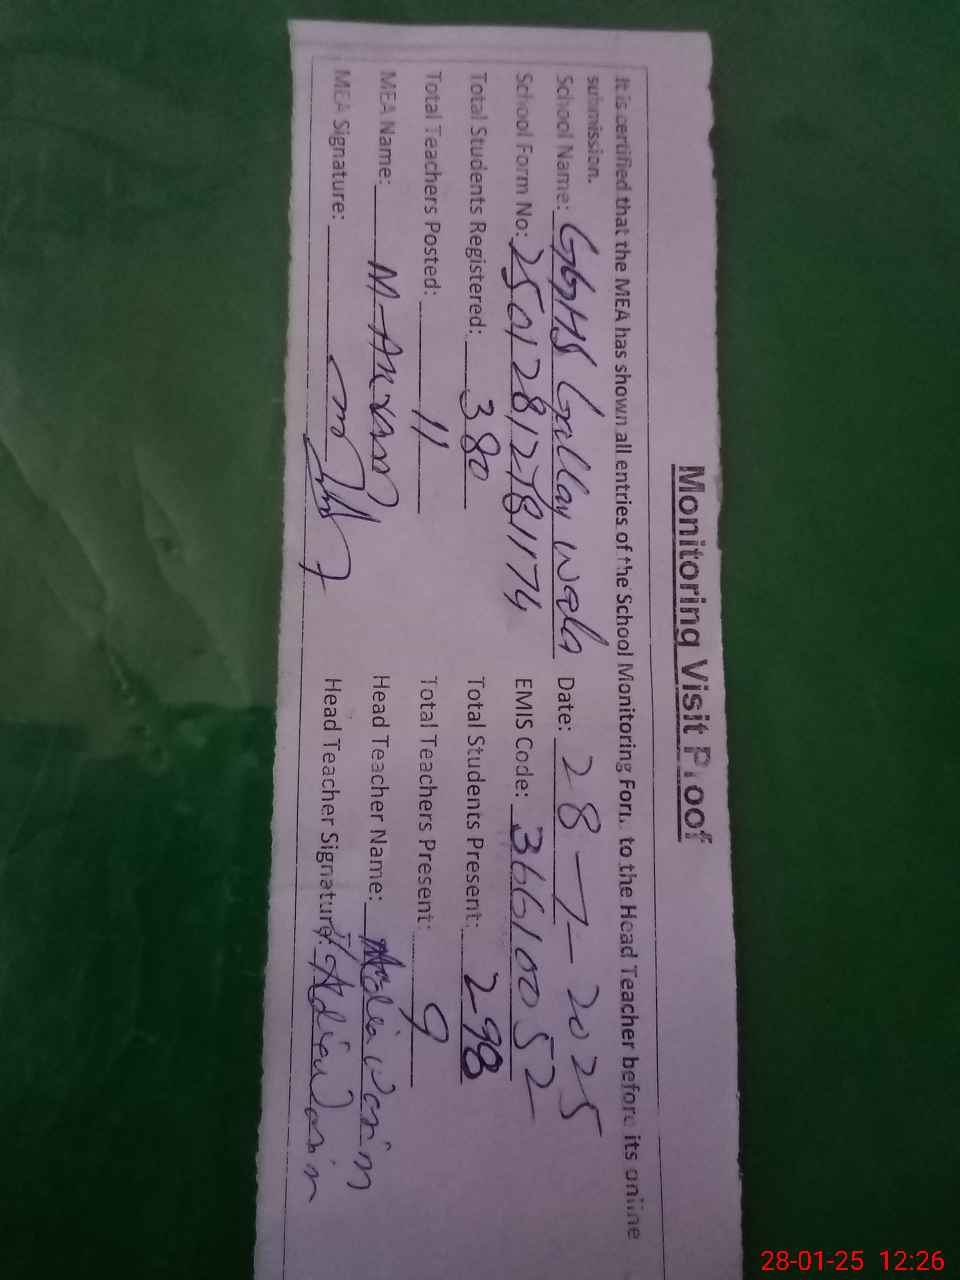 Monitoring Visit Proof
It is certified that the MEA has shown all entries of the School Monitoring Form to the Head Teacher before its online
submission.
School Name: GGHS Gallay wala Date: 28-1-2025
School Form No: 25012812781174 EMIS Code: 36610052
Total Students Registered: 380 Total Students Present: 298
Total Teachers Posted: 11 Total Teachers Present: 9
MEA Name: M-Akram Head Teacher Name: Adia Wasim
MEA Signature: Head Teacher Signature: Adia Wasim
28-01-25 12:26